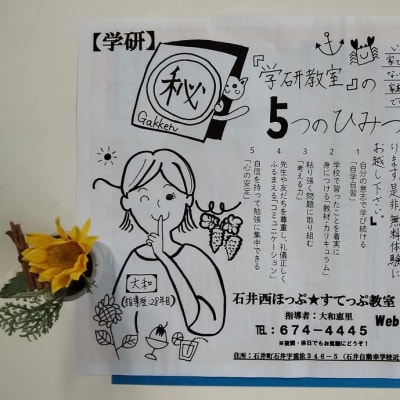 【学研】
秘
Gakken
『学研教室』の
5つのひみつ
1 自分の意志で学び続ける
「自学自習」
2 学校で習ったことを着実に
身につける「教材・カリキュラム」
3 粘り強く問題に取り組む
「考える力」
4 先生や友だちを尊重し、礼儀正しく
ふるまえる「コミュニケーション」
5 自信を持って勉強に集中できる
「心の安定」
ります。是非、無料体験に
お越し下さい。
大和
(指導歴:28年目)
石井西ほっぷ★すてっぷ教室
指導者:大和恵里
TEL:674-4445
Web
※夜間・休日でもお気軽にどうぞ!
住所:石井町石井字重松346-5(石井自動車学校近